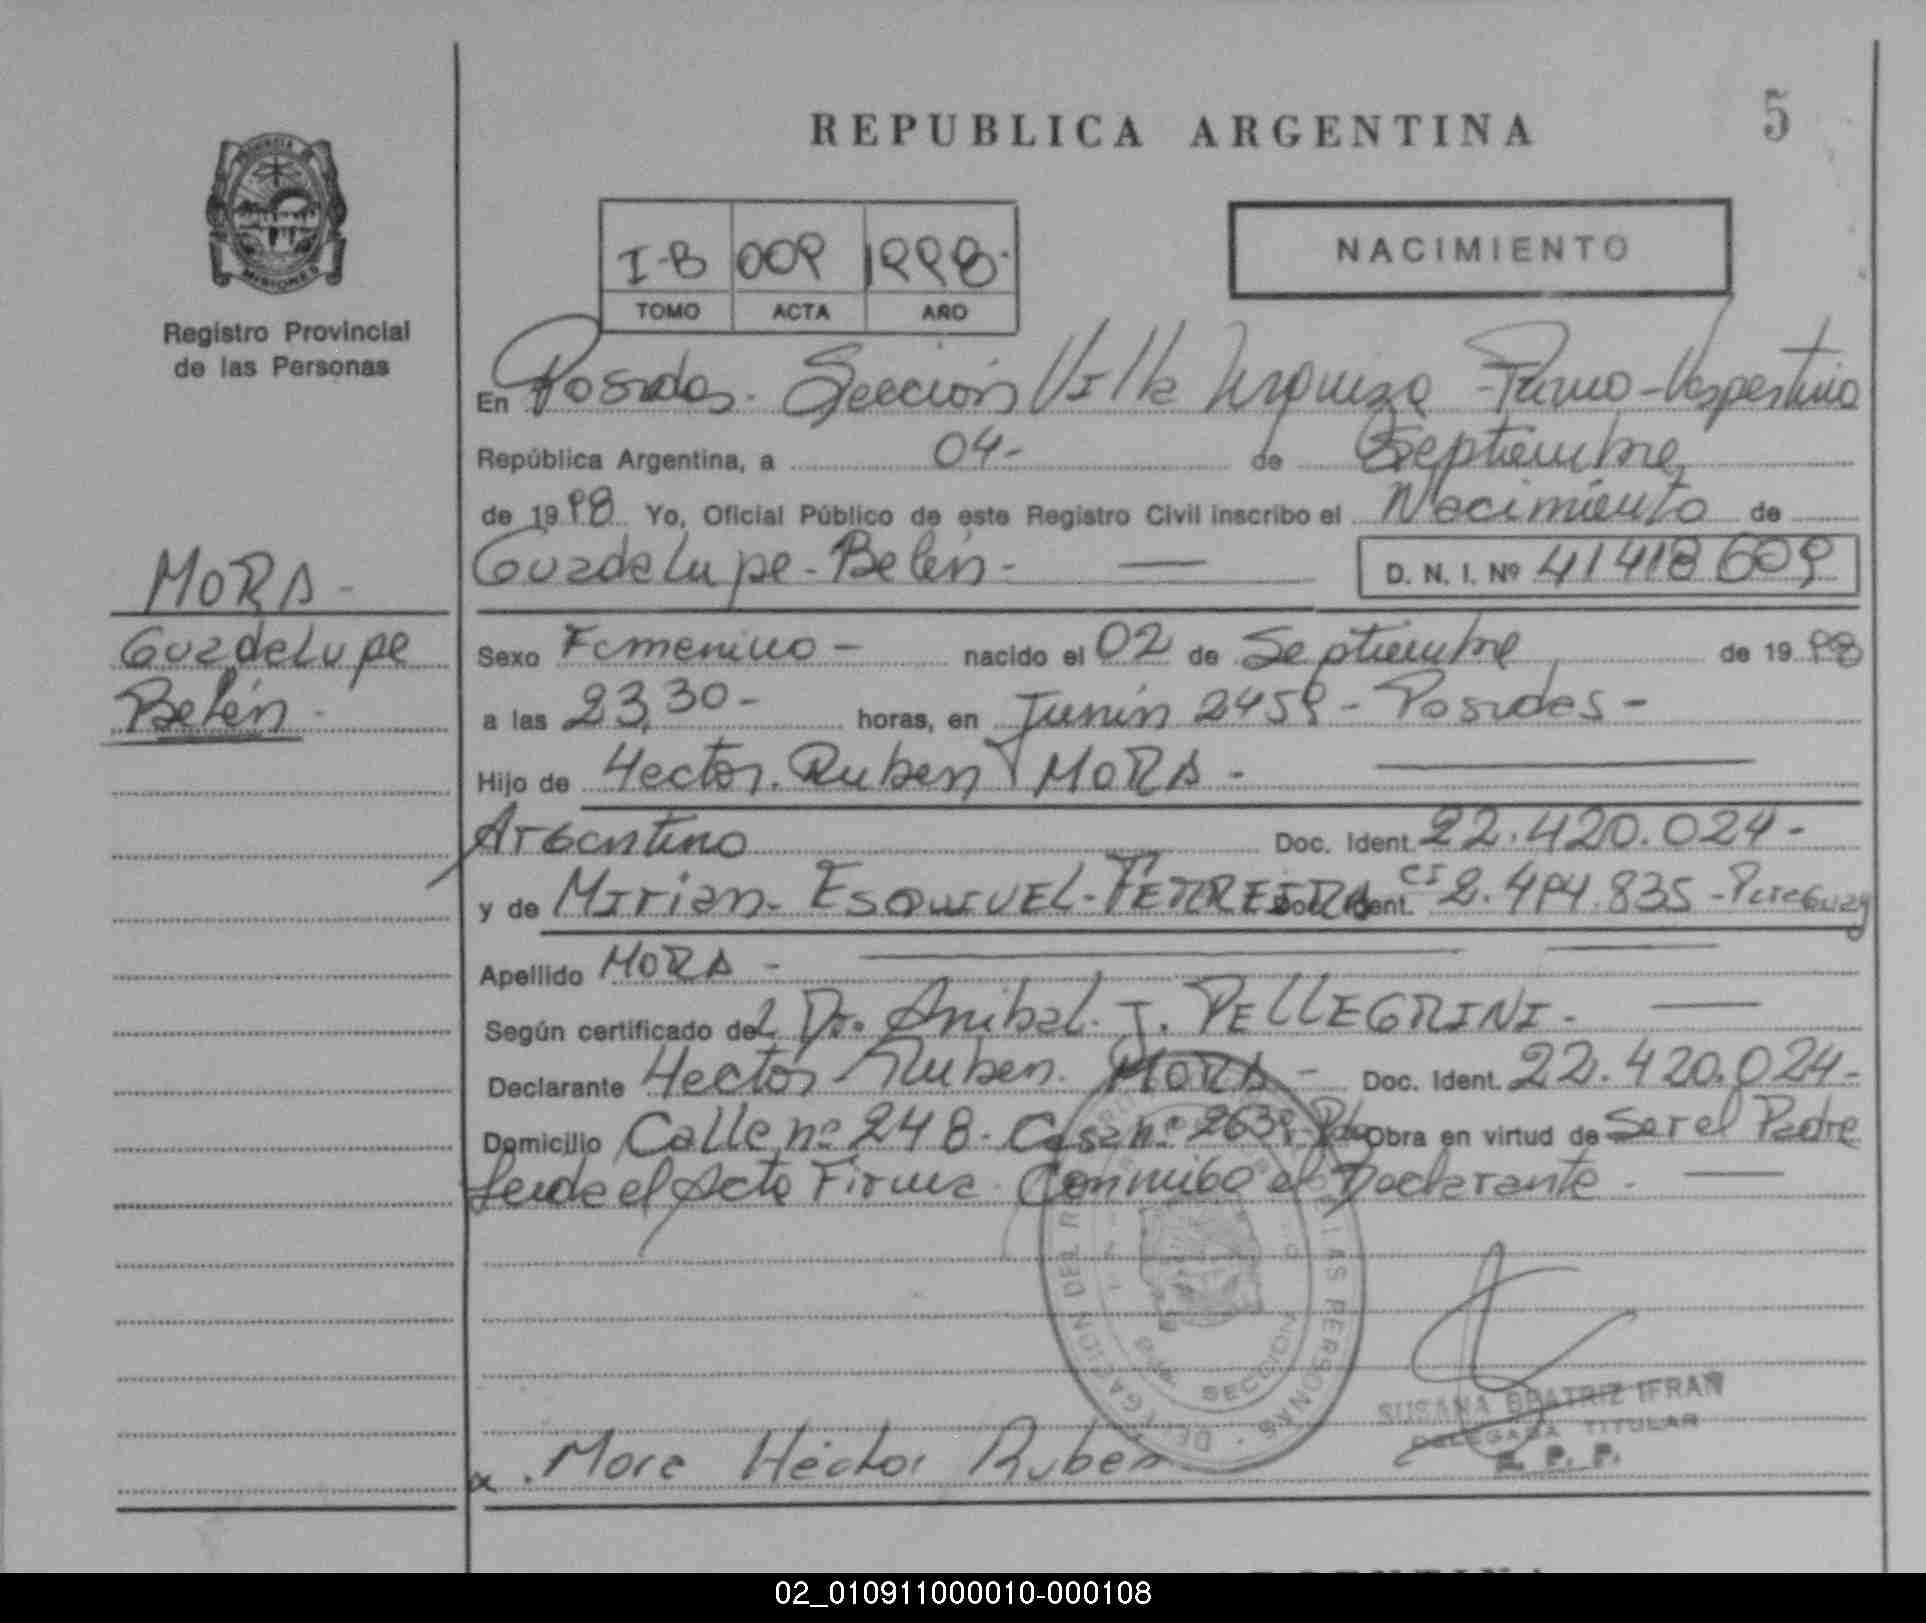 REPUBLICA ARGENTINA
5
PROVINCIA DE MISIONES
Registro Provincial
de las Personas
I-B 009 1998-
TOMO ACTA AÑO
NACIMIENTO
En Posadas. Sección Villa Urquiza -Turno-Vespertino
República Argentina, a 04- de Septiembre
de 1998 Yo, Oficial Público de este Registro Civil inscribo el Nacimiento de
Guadelupe-Belén- D. N. I. Nº 41418609
MORA-
Guadelupe
Belén-
Sexo Femenino- nacido el 02 de Septiembre de 1998
a las 23,30- horas, en Junín 2459- Posadas-
Hijo de Hector. Ruben MORA-
Argentino Doc. Ident. 22.420.024-
y de Mirian- ESQUIVEL-FERREIRA Doc. Ident. CI 2.494.835-Paraguay
Apellido MORA-
Según certificado del Dr. Anibal. J. PELLEGRINI.-
Declarante Hector Ruben. MORA- Doc. Ident. 22.420.024-
Domicilio Calle nº 248. Casa nº 2639-Pdas Obra en virtud de Ser el Padre
Leida el Acta Firma Conmigo el Declarante.
DELEGACION DEL REGISTRO DE LAS PERSONAS
SECCION
SUSANA BEATRIZ IFRAN
DELEGADA TITULAR
R. P. P.
x. Mora Héctor Ruben
02_010911000010-000108